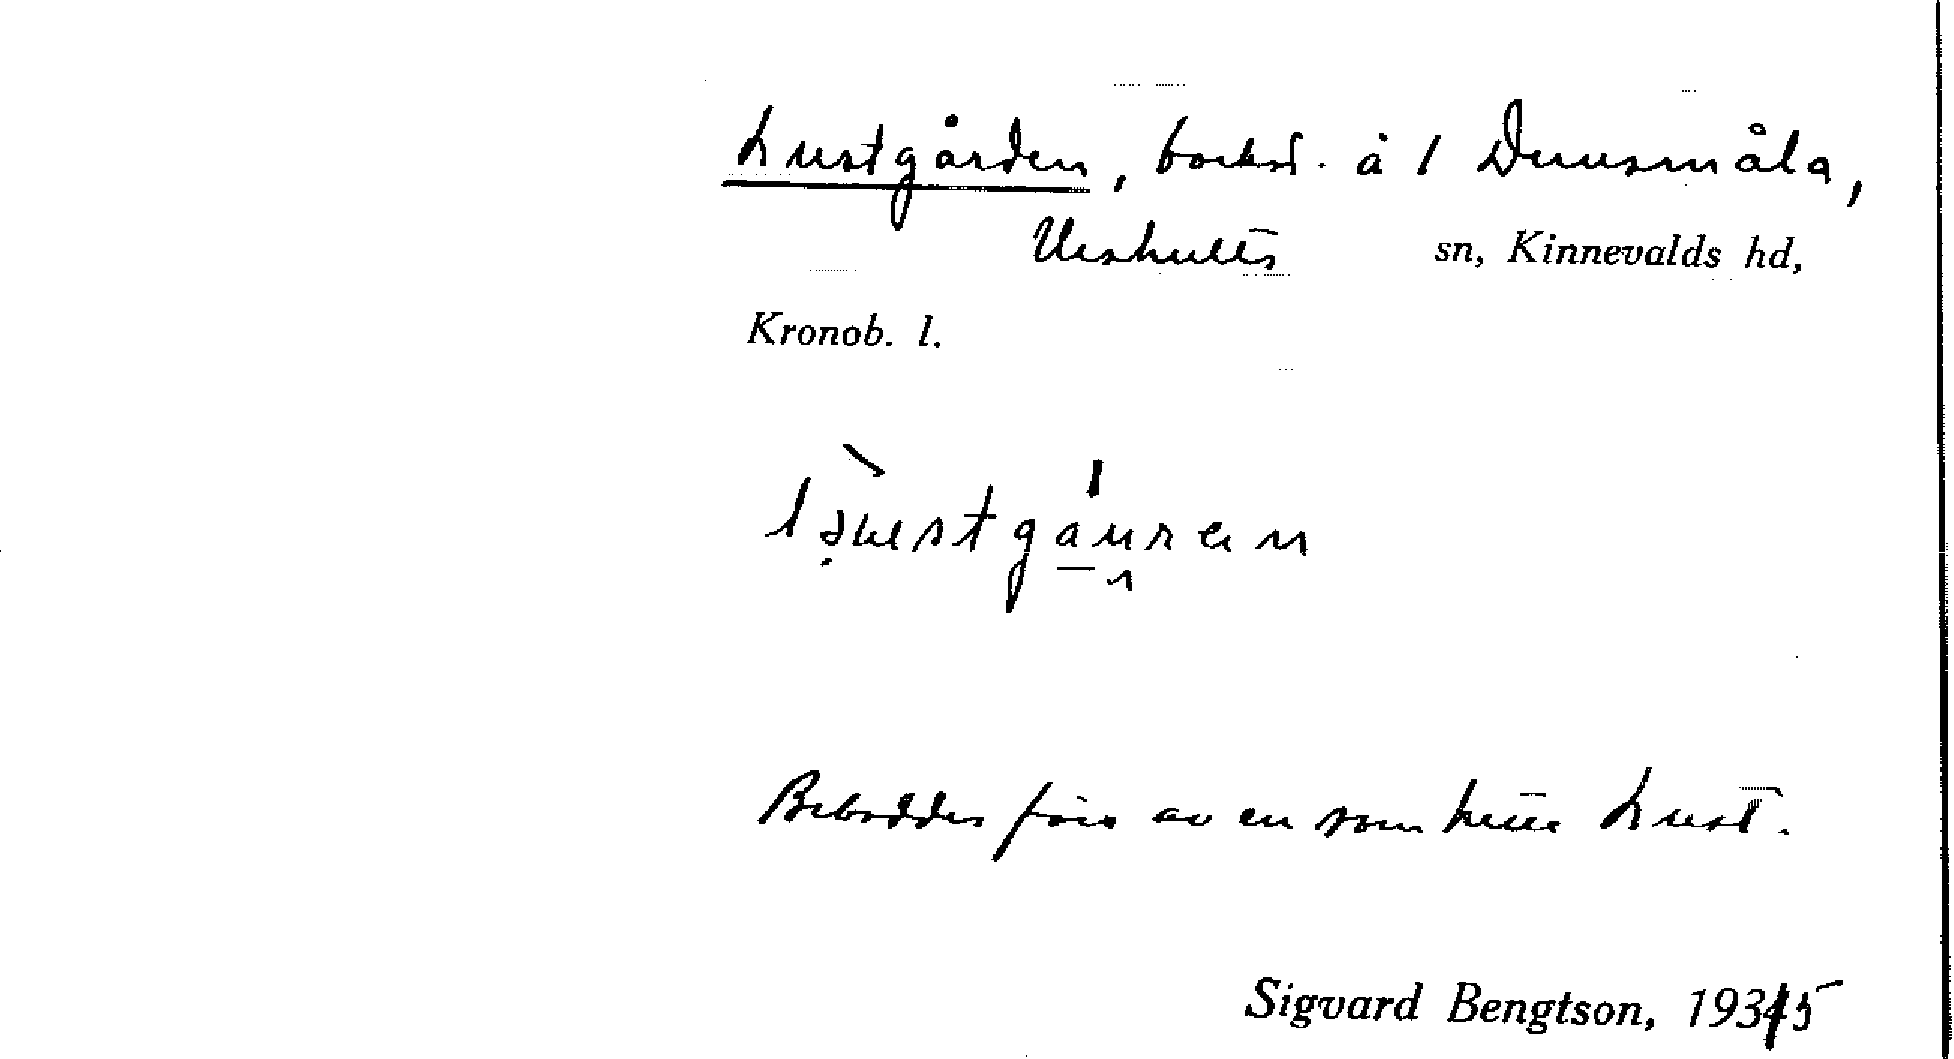 Lustgården, bortst. å 1 Dunsmåla,
Urshults sn, Kinnevalds hd,
Kronob. l.
Beboddes förr av en som hette Lust.
Sigvard Bengtson, 1935